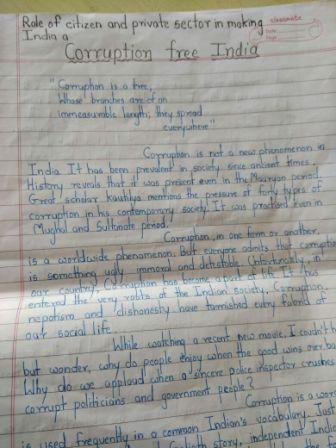 Role of citizen and private sector in making
India a
classmate
Date
Page
Corruption free India
"Corruption is a tree,
Whose branches are of an
immeasurable length; they spread
everywhere"
Corruption is not a new phenomenon in
India. It has been prevalent in society since ancient times.
History reveals that it was present even in the Mauryan period.
Great scholar Kautilya mentions the pressure of forty types of
corruption in his contemporary society. It was practised even in
Mughal and Sultanate period.
Corruption, in one form or another,
is a worldwide phenomenon. But everyone admits that corruption
is something ugly immoral and detestable. Unfortunately, in
our country, Corruption has become a part of life. It has
entered the very roots of the Indian society. Corruption,
nepotism and dishonesty have tarnished every fabric of
our social life.
While watching a recent new movie, I couldn't h
but wonder, why do people enjoy when the good wins over ba
Why do we applaud when a sincere police inspector crushes
corrupt politicians and government people?
Corruption is a word
is used frequently in a common Indian's vocabulary. Just
story, independent India